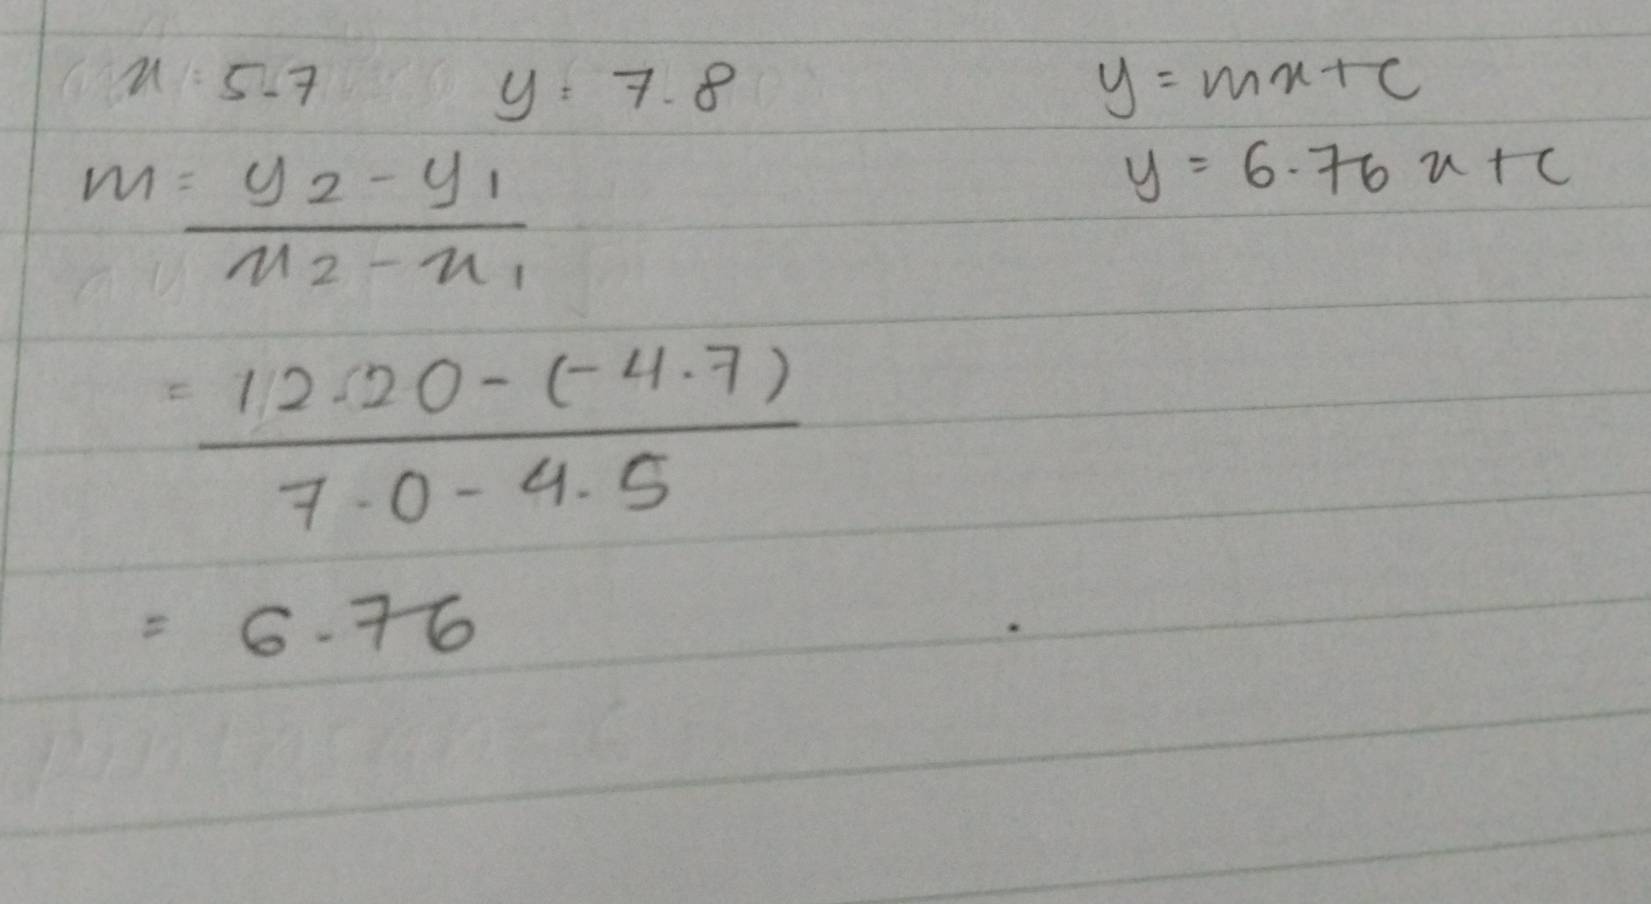 x: 5.7 y: 7.8
m = y2 - y1
x2 - x1
= 12.20 - (-4.7)
7.0 - 4.5
= 6.76
y = mx + c
y = 6.76 x + c